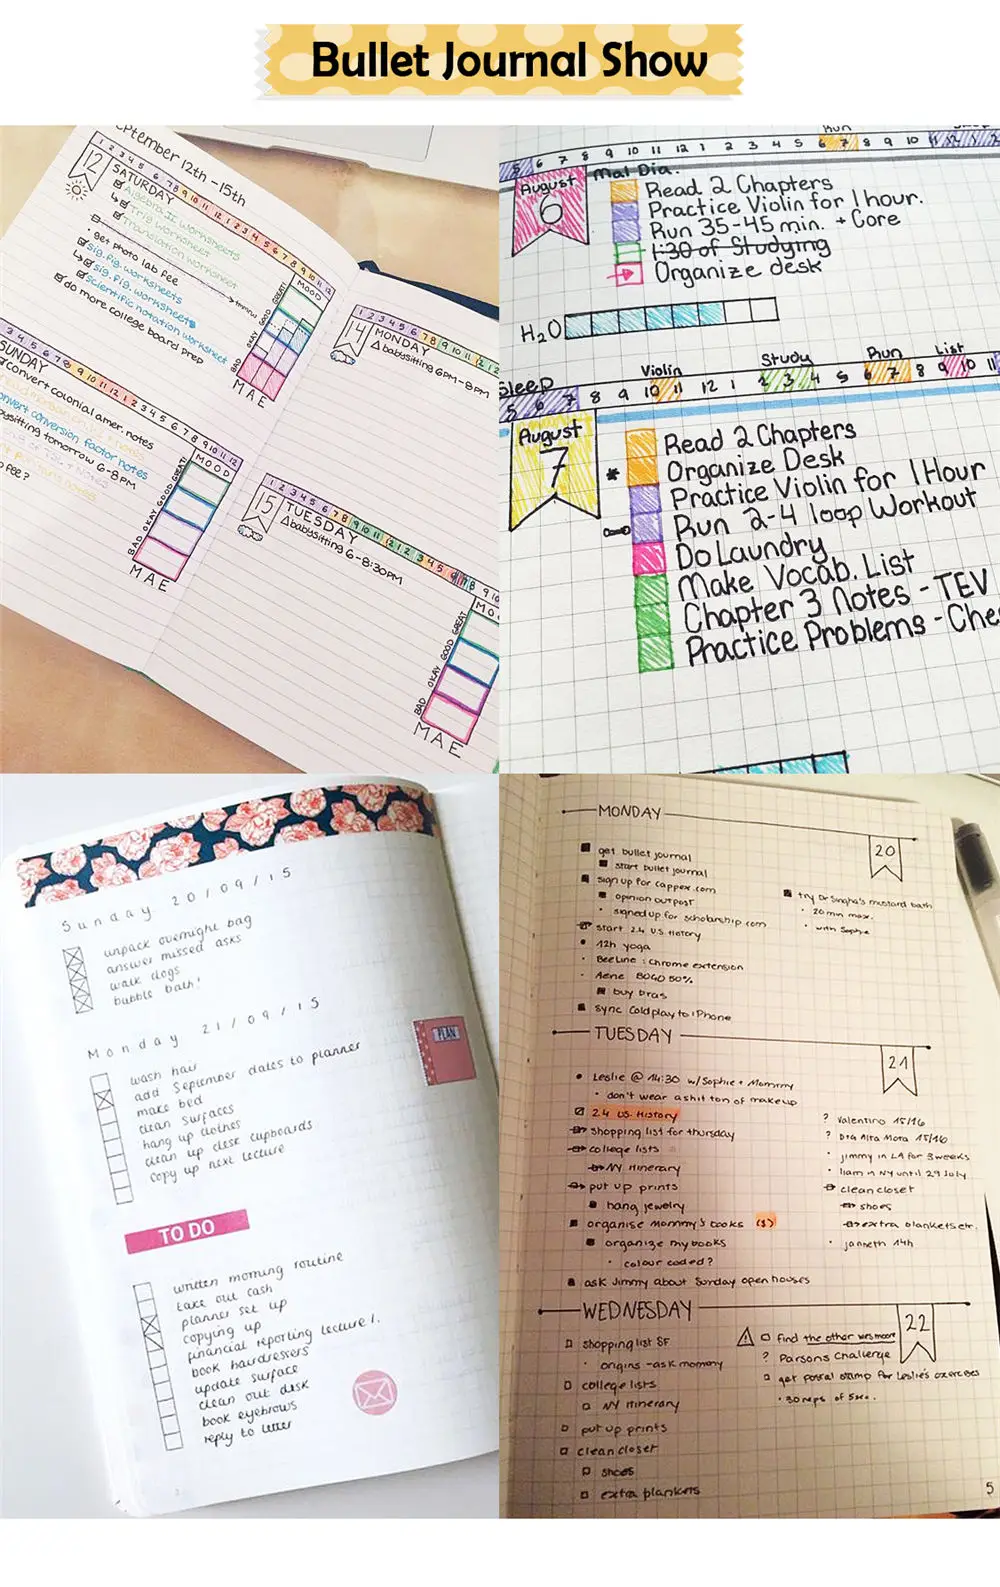 Bullet Journal Show
September 12th - 15th
1 2 3 4 5 6 7 8 9 10 11 12 1 2 3 4 5 6 7 8 9 10 11 12
12
SATURDAY
Algebra II worksheets
Trig worksheet
Translation worksheet
get photo lab fee
sig. fig. worksheets
sig. fig. worksheets
scientific notation worksheet
do more college board prep
MOOD
GREAT!
GOOD
OKAY
BAD
MAE
3 4 5 6 7 8 9 10 11 12 1 2 3 4 5 6 7 8 9 10 11 12
SUNDAY
convert colonial amer. notes
convert conversion factor notes
babysitting tomorrow 6-8 PM
fee?
MOOD
GREAT!
GOOD
OKAY
BAD
MAE
14
MONDAY
babysitting 6PM-8PM
15
TUESDAY
babysitting 6-8:30PM
GREAT
GOOD
OKAY
BAD
MAE
Run
5 6 7 8 9 10 11 12 1 2 3 4 5 6 7 8 9 10 11 12 1 2
August
6
Mal Dia.
Read 2 Chapters
Practice Violin for 1 hour.
Run 35-45 min. + Core
1:30 of Studying
Organize desk
H2O
Sleep Violin Study Run List
5 6 7 8 9 10 11 12 1 2 3 4 5 6 7 8 9 10 11
August
7
Read 2 Chapters
Organize Desk
Practice Violin for 1 Hour
Run 2-4 loop Workout
Do Laundry
Make Vocab. List
Chapter 3 Notes - TEV
Practice Problems - Che
Sunday 20/09/15
unpack overnight bag
answer missed asks
walk dogs
bubble bath!
Monday 21/09/15
wash hair
add September dates to planner
make bed
clean surfaces
hang up clothes
clean up desk cupboards
copy up next lecture
PLAN
TO DO
written morning routine
take out cash
planner set up
copying up
financial reporting lecture 1.
book hairdressers
update surface
clean out disk
book eyebrows
reply to letter
MONDAY
20
get bullet journal
start bullet journal
sign up for cappex.com
opinion outpost
signed up for scholarship.com
start 2.4 U.S. History
12h yoga
BeeLine: Chrome extension
Aerie BOGO 50%
buy bras
sync Coldplay to iPhone
try Dr Singha's mustard bath
20 min max.
with Sophie
TUESDAY
21
Leslie @ 14:30 w/Sophie + Mommy
don't wear a shit ton of makeup
2.4 US. History
shopping list for thursday
college lists
NY itinerary
put up prints
hang jewelry
organise mommy's books ($)
organize my books
colour coded?
ask Jimmy about Sunday open houses
? Valentino 15/16
? Dra Alta Mora 15/16
jimmy in LA for 3 weeks
liam in NY until 29 July
clean closet
shoes
extra blankets etc.
janneth 14h
WEDNESDAY
22
shopping list SF
origins - ask mommy
college lists
NY itinerary
put up prints
clean closet
shoes
extra blankets
find the other
? Parsons Challenge
get postal stamp for Leslie's exercises
30 reps of 5 sec.
5